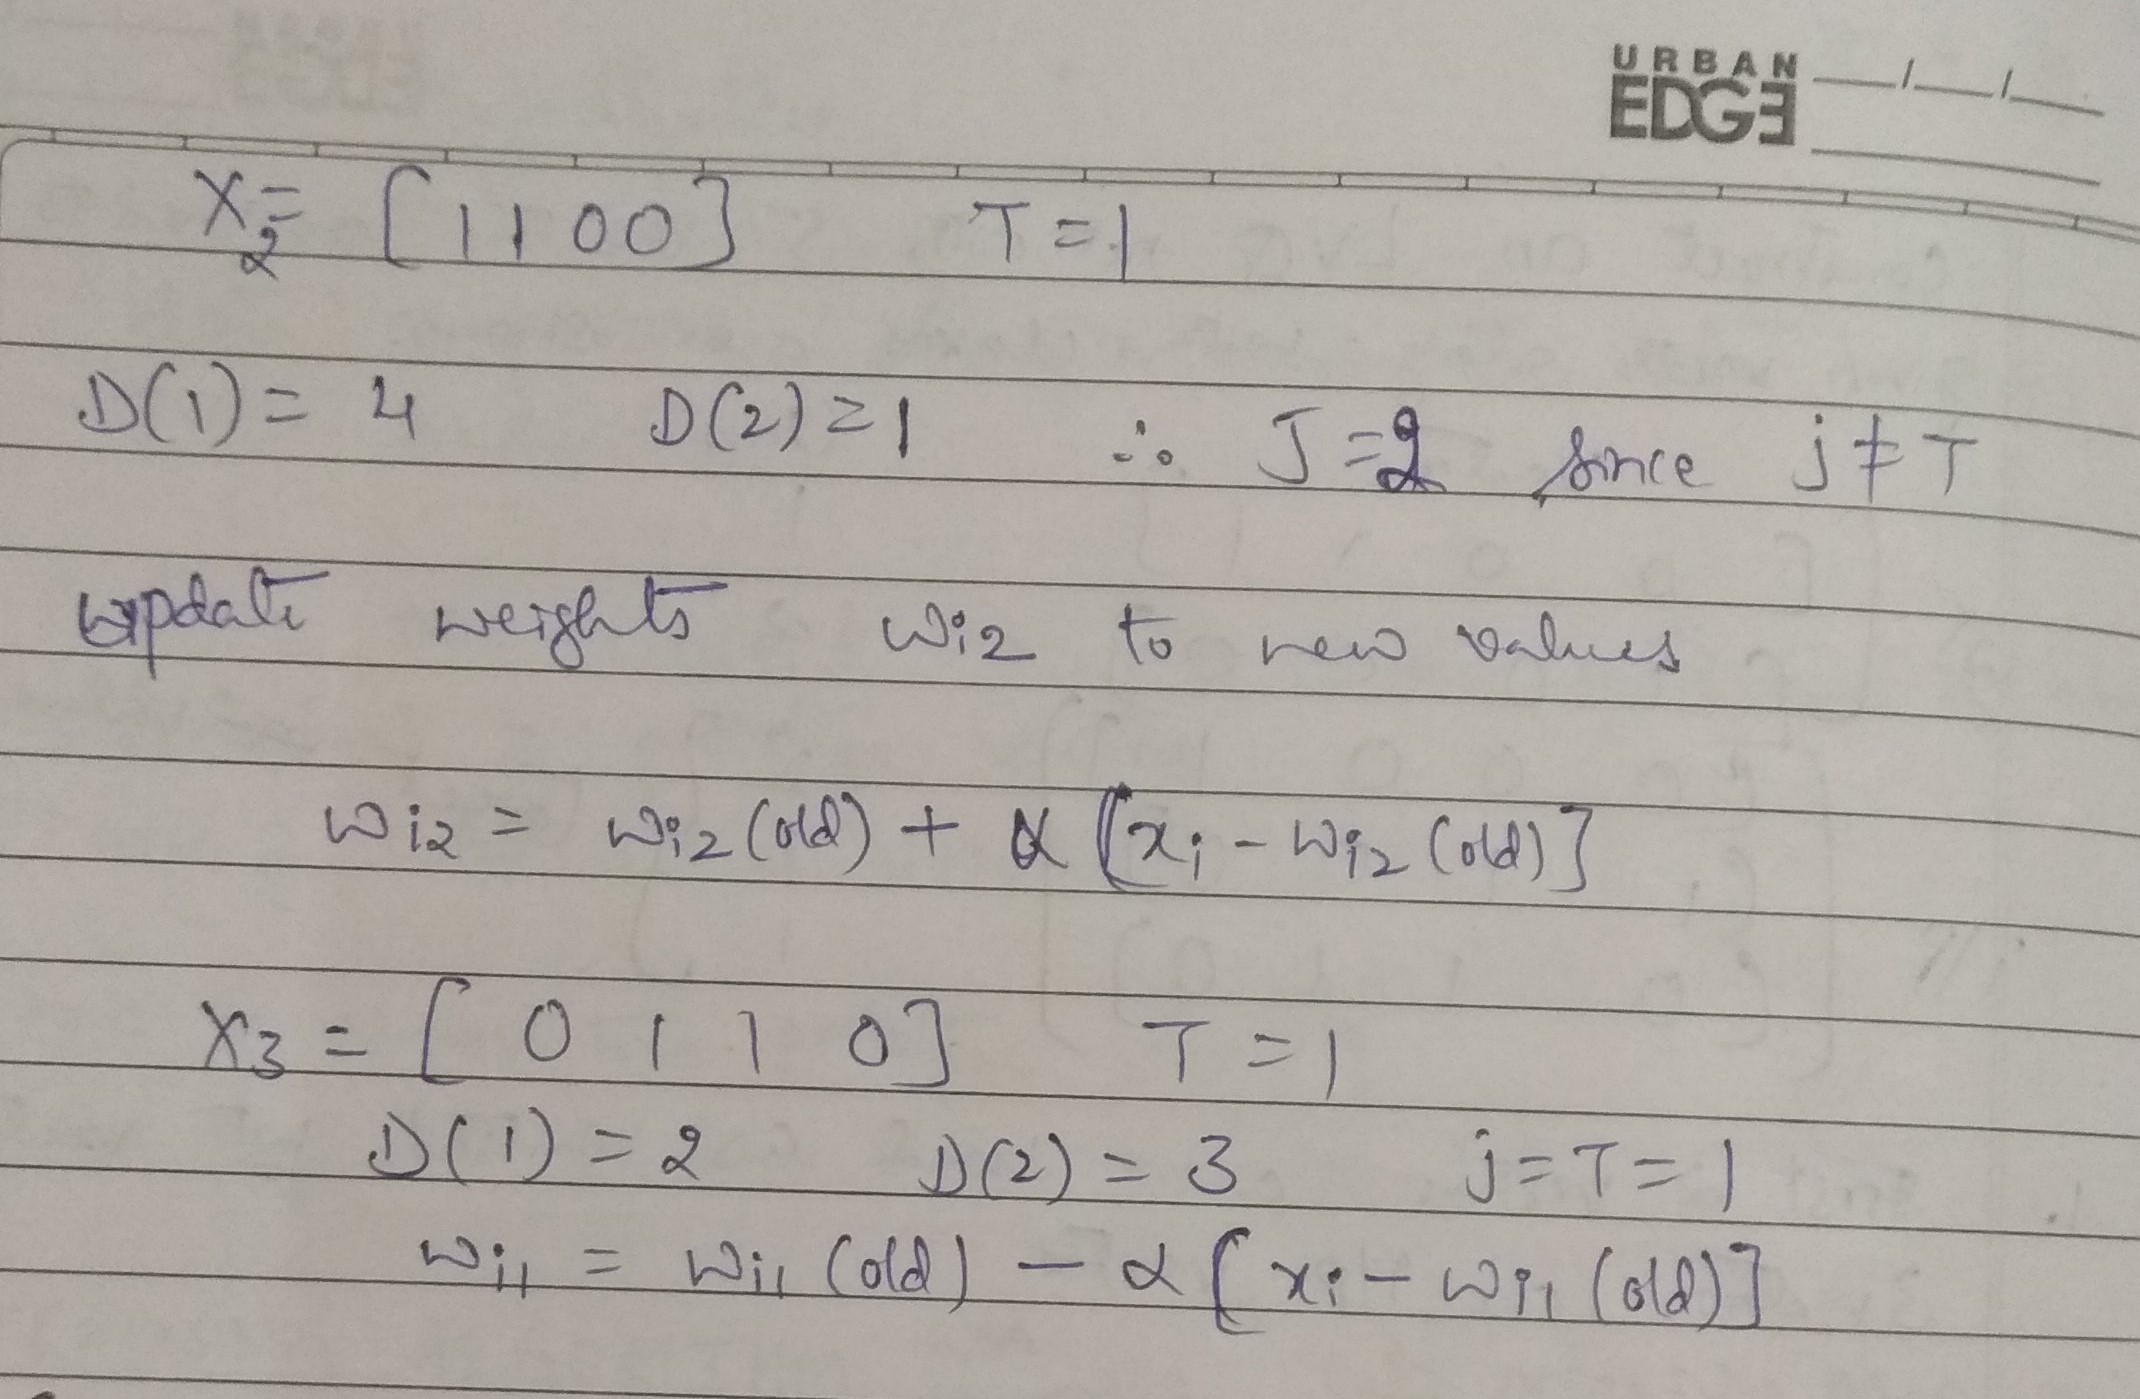 URBAN
EDGE __/__/__
X₂ = [1 1 0 0] T = 1
D(1) = 4 D(2) = 1 ∴ J = 2 since j ≠ T
update weights wi2 to new values
wi2 = wi2 (old) + α [xi - wi2 (old)]
X3 = [0 1 1 0] T = 1
D(1) = 2 D(2) = 3 j = T = 1
wi1 = wi1 (old) - α [xi - wi1 (old)]